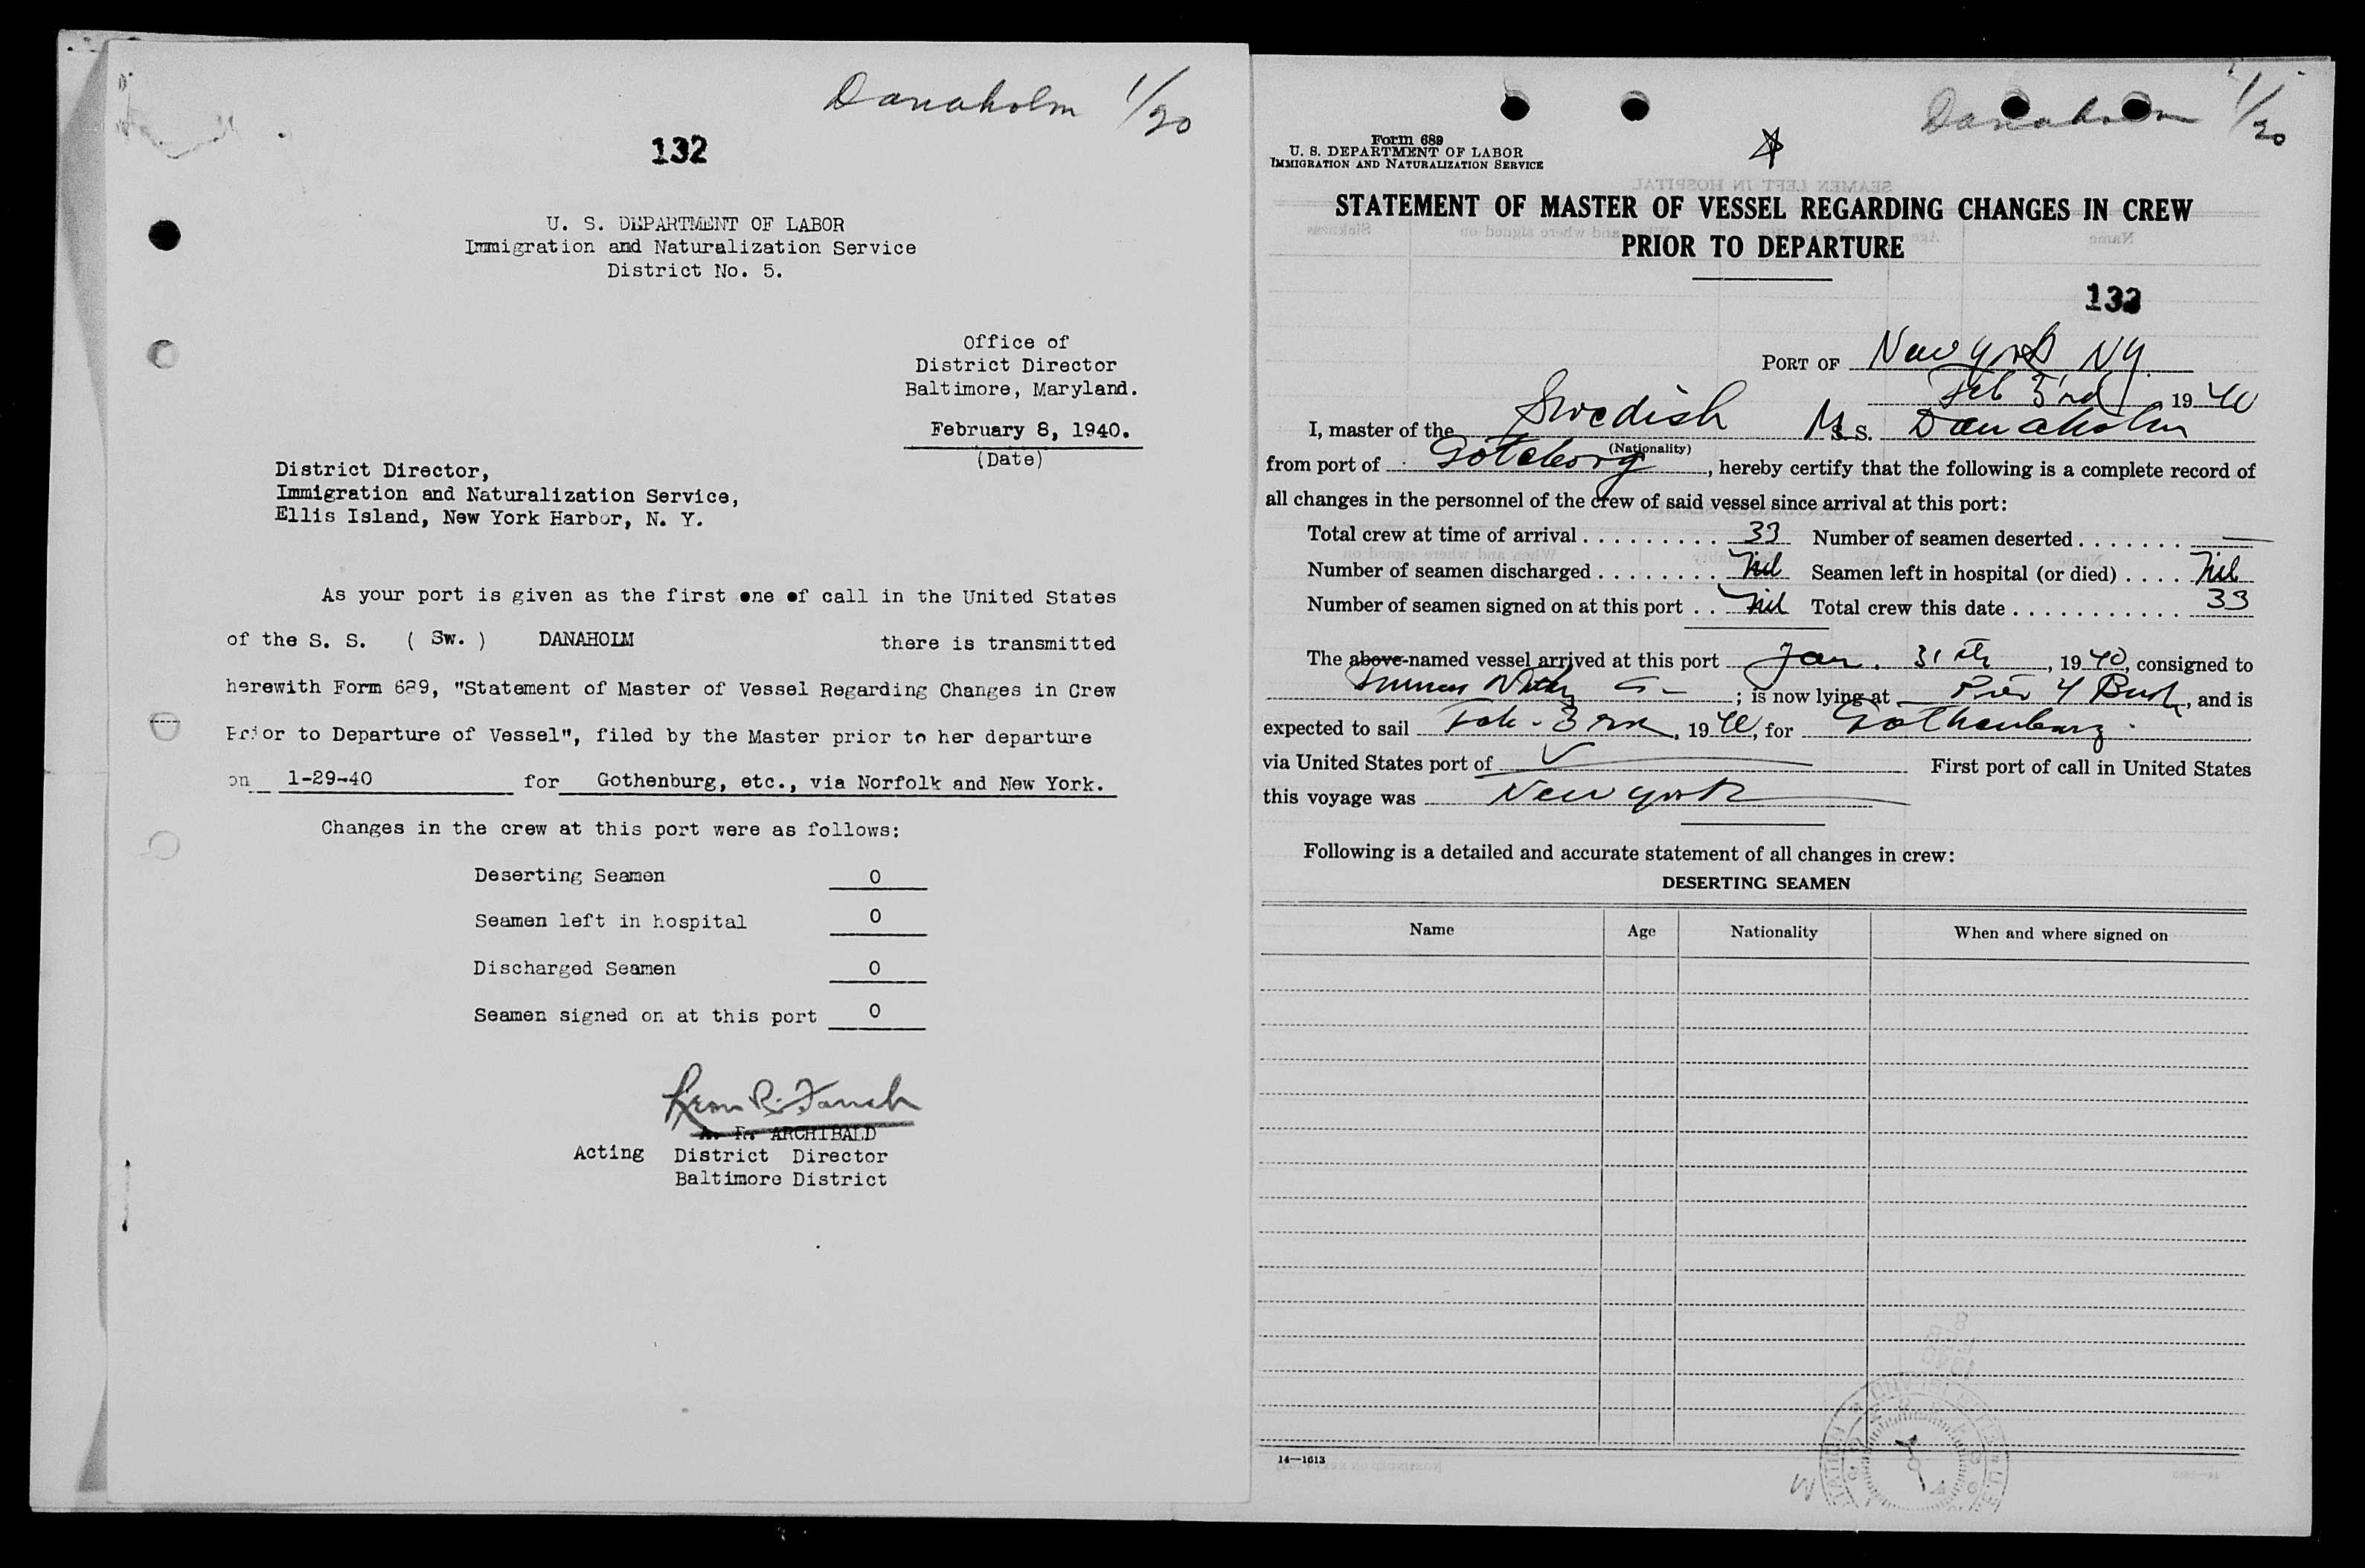 Danaholm 1/20
132
U. S. DEPARTMENT OF LABOR
Immigration and Naturalization Service
District No. 5.
Office of
District Director
Baltimore, Maryland.
February 8, 1940.
(Date)
District Director,
Immigration and Naturalization Service,
Ellis Island, New York Harbor, N. Y.
As your port is given as the first one of call in the United States
of the S. S. ( Sw. ) DANAHOLM there is transmitted
herewith Form 689, "Statement of Master of Vessel Regarding Changes in Crew
Prior to Departure of Vessel", filed by the Master prior to her departure
on 1-29-40 for Gothenburg, etc., via Norfolk and New York.
Changes in the crew at this port were as follows:
Deserting Seamen 0
Seamen left in hospital 0
Discharged Seamen 0
Seamen signed on at this port 0
A. R. ARCHIBALD
Acting District Director
Baltimore District
Danaholm 1/20
Form 689
U. S. DEPARTMENT OF LABOR
IMMIGRATION AND NATURALIZATION SERVICE
STATEMENT OF MASTER OF VESSEL REGARDING CHANGES IN CREW
PRIOR TO DEPARTURE
132
PORT OF New York NY
Feb 3rd, 1940
I, master of the Swedish M.S. Danaholm
(Nationality)
from port of Göteborg, hereby certify that the following is a complete record of
all changes in the personnel of the crew of said vessel since arrival at this port:
Total crew at time of arrival . . . . . . . . . 33 Number of seamen deserted . . . . . . . —
Number of seamen discharged . . . . . . . . Nil Seamen left in hospital (or died) . . . . Nil
Number of seamen signed on at this port . . Nil Total crew this date . . . . . . . . . . . . 33
The above-named vessel arrived at this port Jan. 31th, 1940, consigned to
; is now lying at Pier 4 Bush, and is
expected to sail Feb. 3rd, 1940, for Gothenburg.
via United States port of First port of call in United States
this voyage was New York
Following is a detailed and accurate statement of all changes in crew:
DESERTING SEAMEN
Name Age Nationality When and where signed on
14—1613